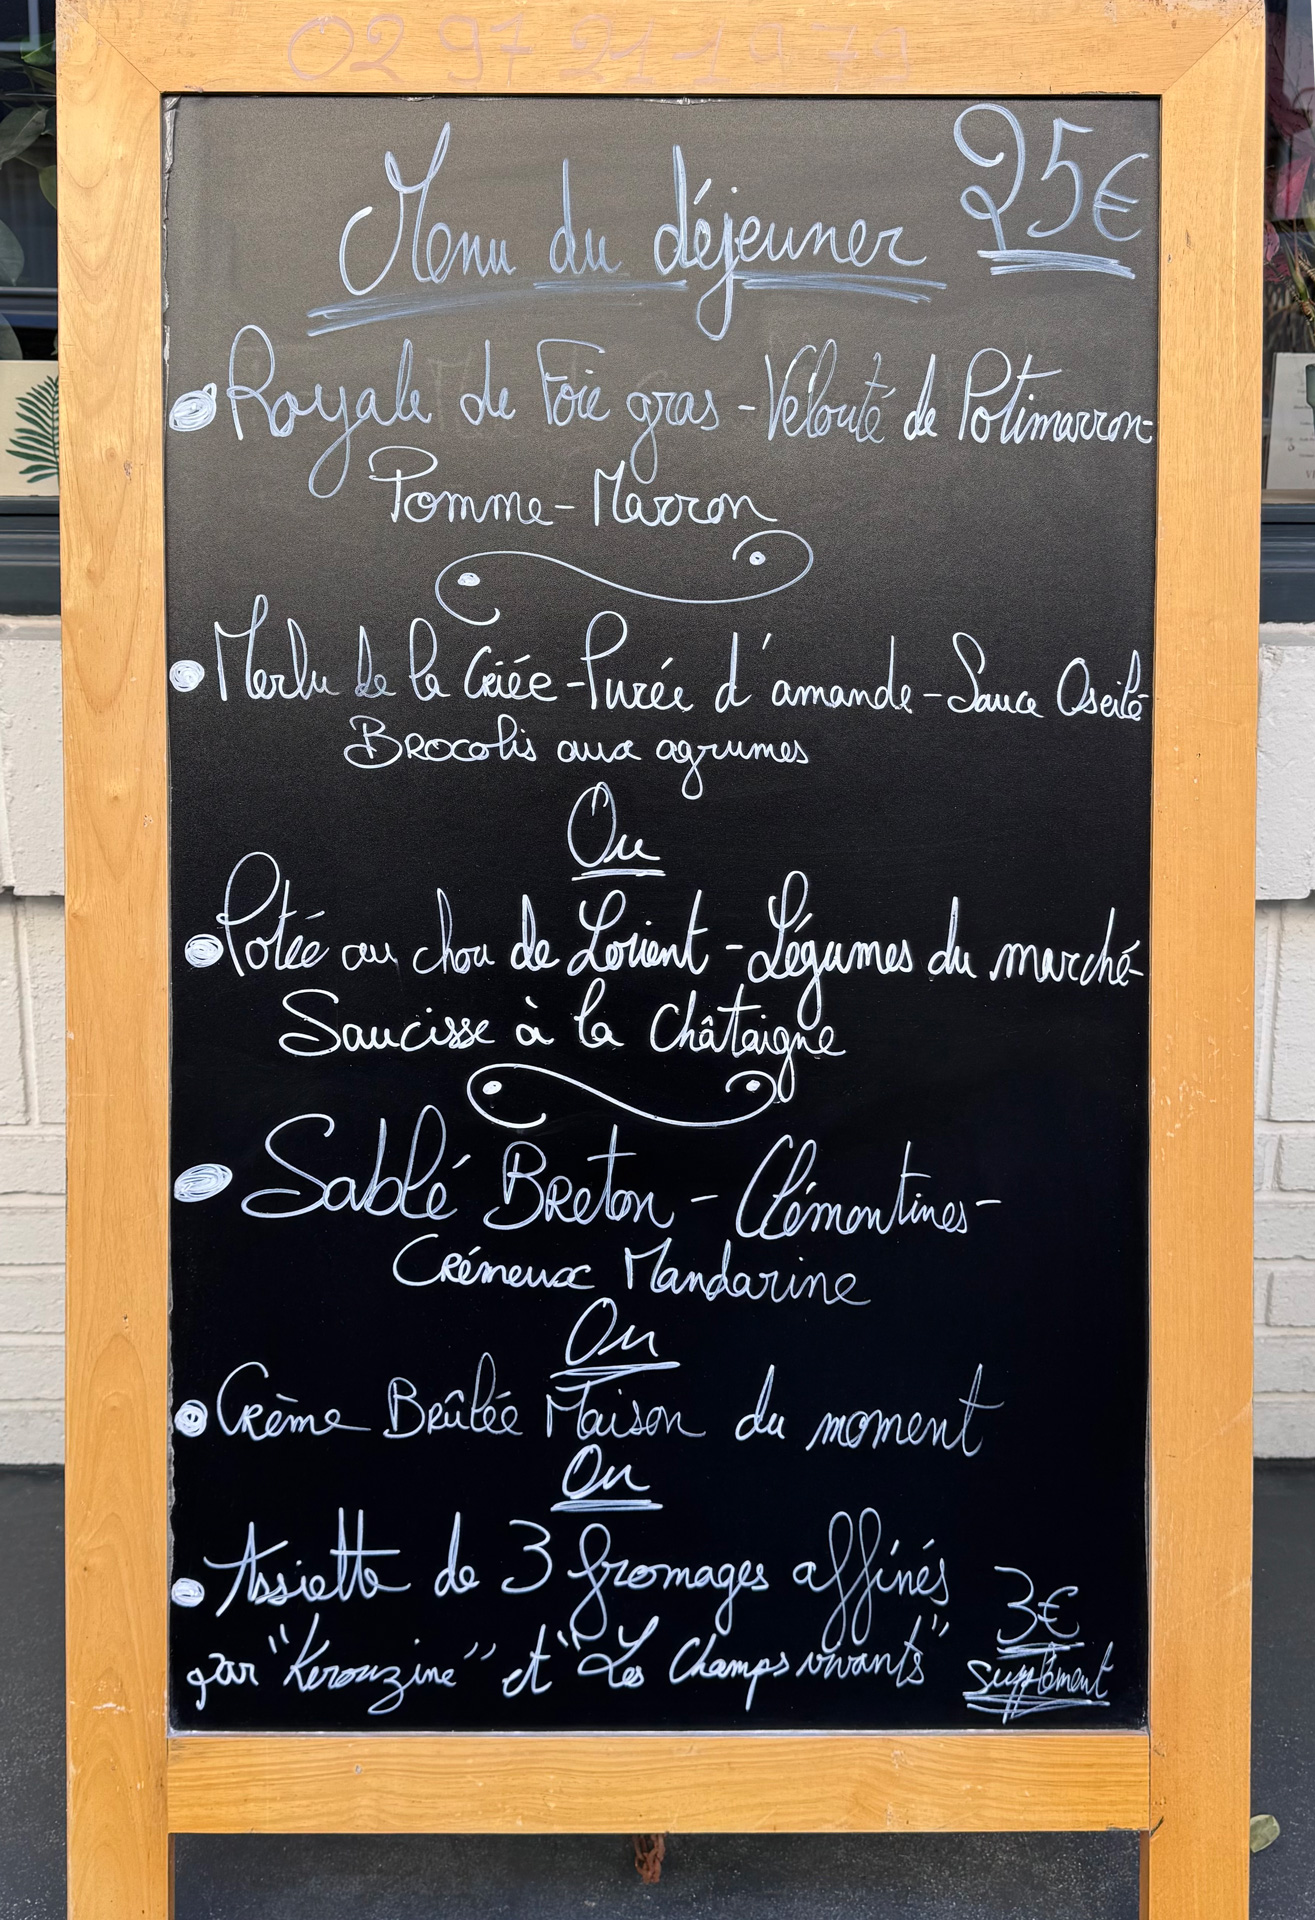 02 97 21 19 79
Menu du déjeuner 25€
Royale de Foie gras - Velouté de Potimarron-
Pomme - Marron
Merlu de la Criée - Purée d'amande - Sauce Oseille
Brocolis aux agrumes
Ou
Potée au chou de Lorient - Légumes du marché-
Saucisse à la Châtaigne
Sablé Breton - Clémentines-
Crémeux Mandarine
Ou
Crème Brûlée Maison du moment
Ou
Assiette de 3 fromages affinés 3€
par "Kerouzine" et "Les Champs vivants" supplément